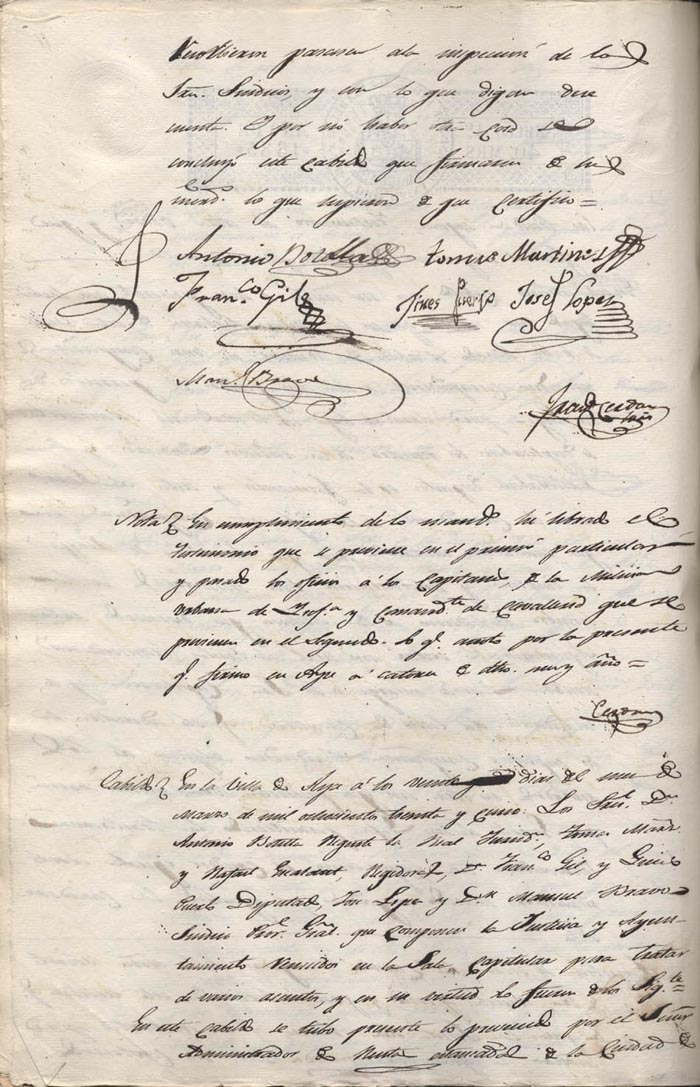 pasasen ala inspeccion de los
Sres. Sindicos, y con lo que digan dese
cuenta. Y por no haber otra cosa se
concluyó este cabildo que firmaron de sus
mrcds. lo que supieron de que certifico =
Antonio Botella Tomas Martinez
Franco. Gil Gines Puerto Josef Lopez
Manl. Bravo
Franco. Cerdan
Nota En cumplimiento de lo mandado hé librado el
testimonio que se previene en el primer particular
y pasado los oficios á los Capitanes de la Milicia
Urbana de Infa. y Comandte. de Cavalleria que se
previenen en el Segundo. Lo qe. anoto por la presente
qe. firmo en Aspe á catorce de dho. mes y año =
Cerdan
Cabildo En la Villa de Aspe á los veinte y dias del mes de
Marzo de mil ochocientos treinta y cinco. Los Sres. Dn.
Antonio Botella Regente la Real Jurisdn., Tomas Martz.
y Rafael Regidores, Dn. Franco. Gil, y Gines
Puerto Diputados, José Lopez y Dn. Manuel Bravo
Sindico Pror. Gral. que componen la Justicia y Ayun-
tamiento reunidos en la Sala Capitular para tratar
de varios asuntos, y en su virtud lo fueron de los Sigtes.
En este Cabildo se tubo presente lo prevenido por el Señor
Administrador de Rentas de la Ciudad de